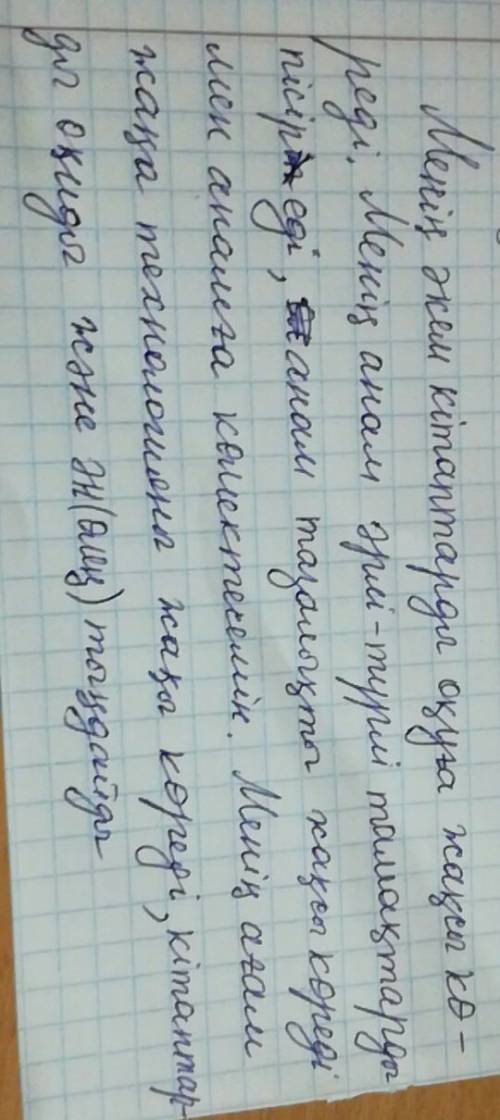 Менің әкем кітаптарды оқуға жақсы кө-
реді. Менің анам әрлі-түрлі тамақтарды
пісіреді, анам тазалықты жақсы көреді
мен анамға көмектесемін. Менің ағам
жаңа технологияны жақсы көреді, кітаптар-
ды оқиды және ән(өлең) тыңдайды